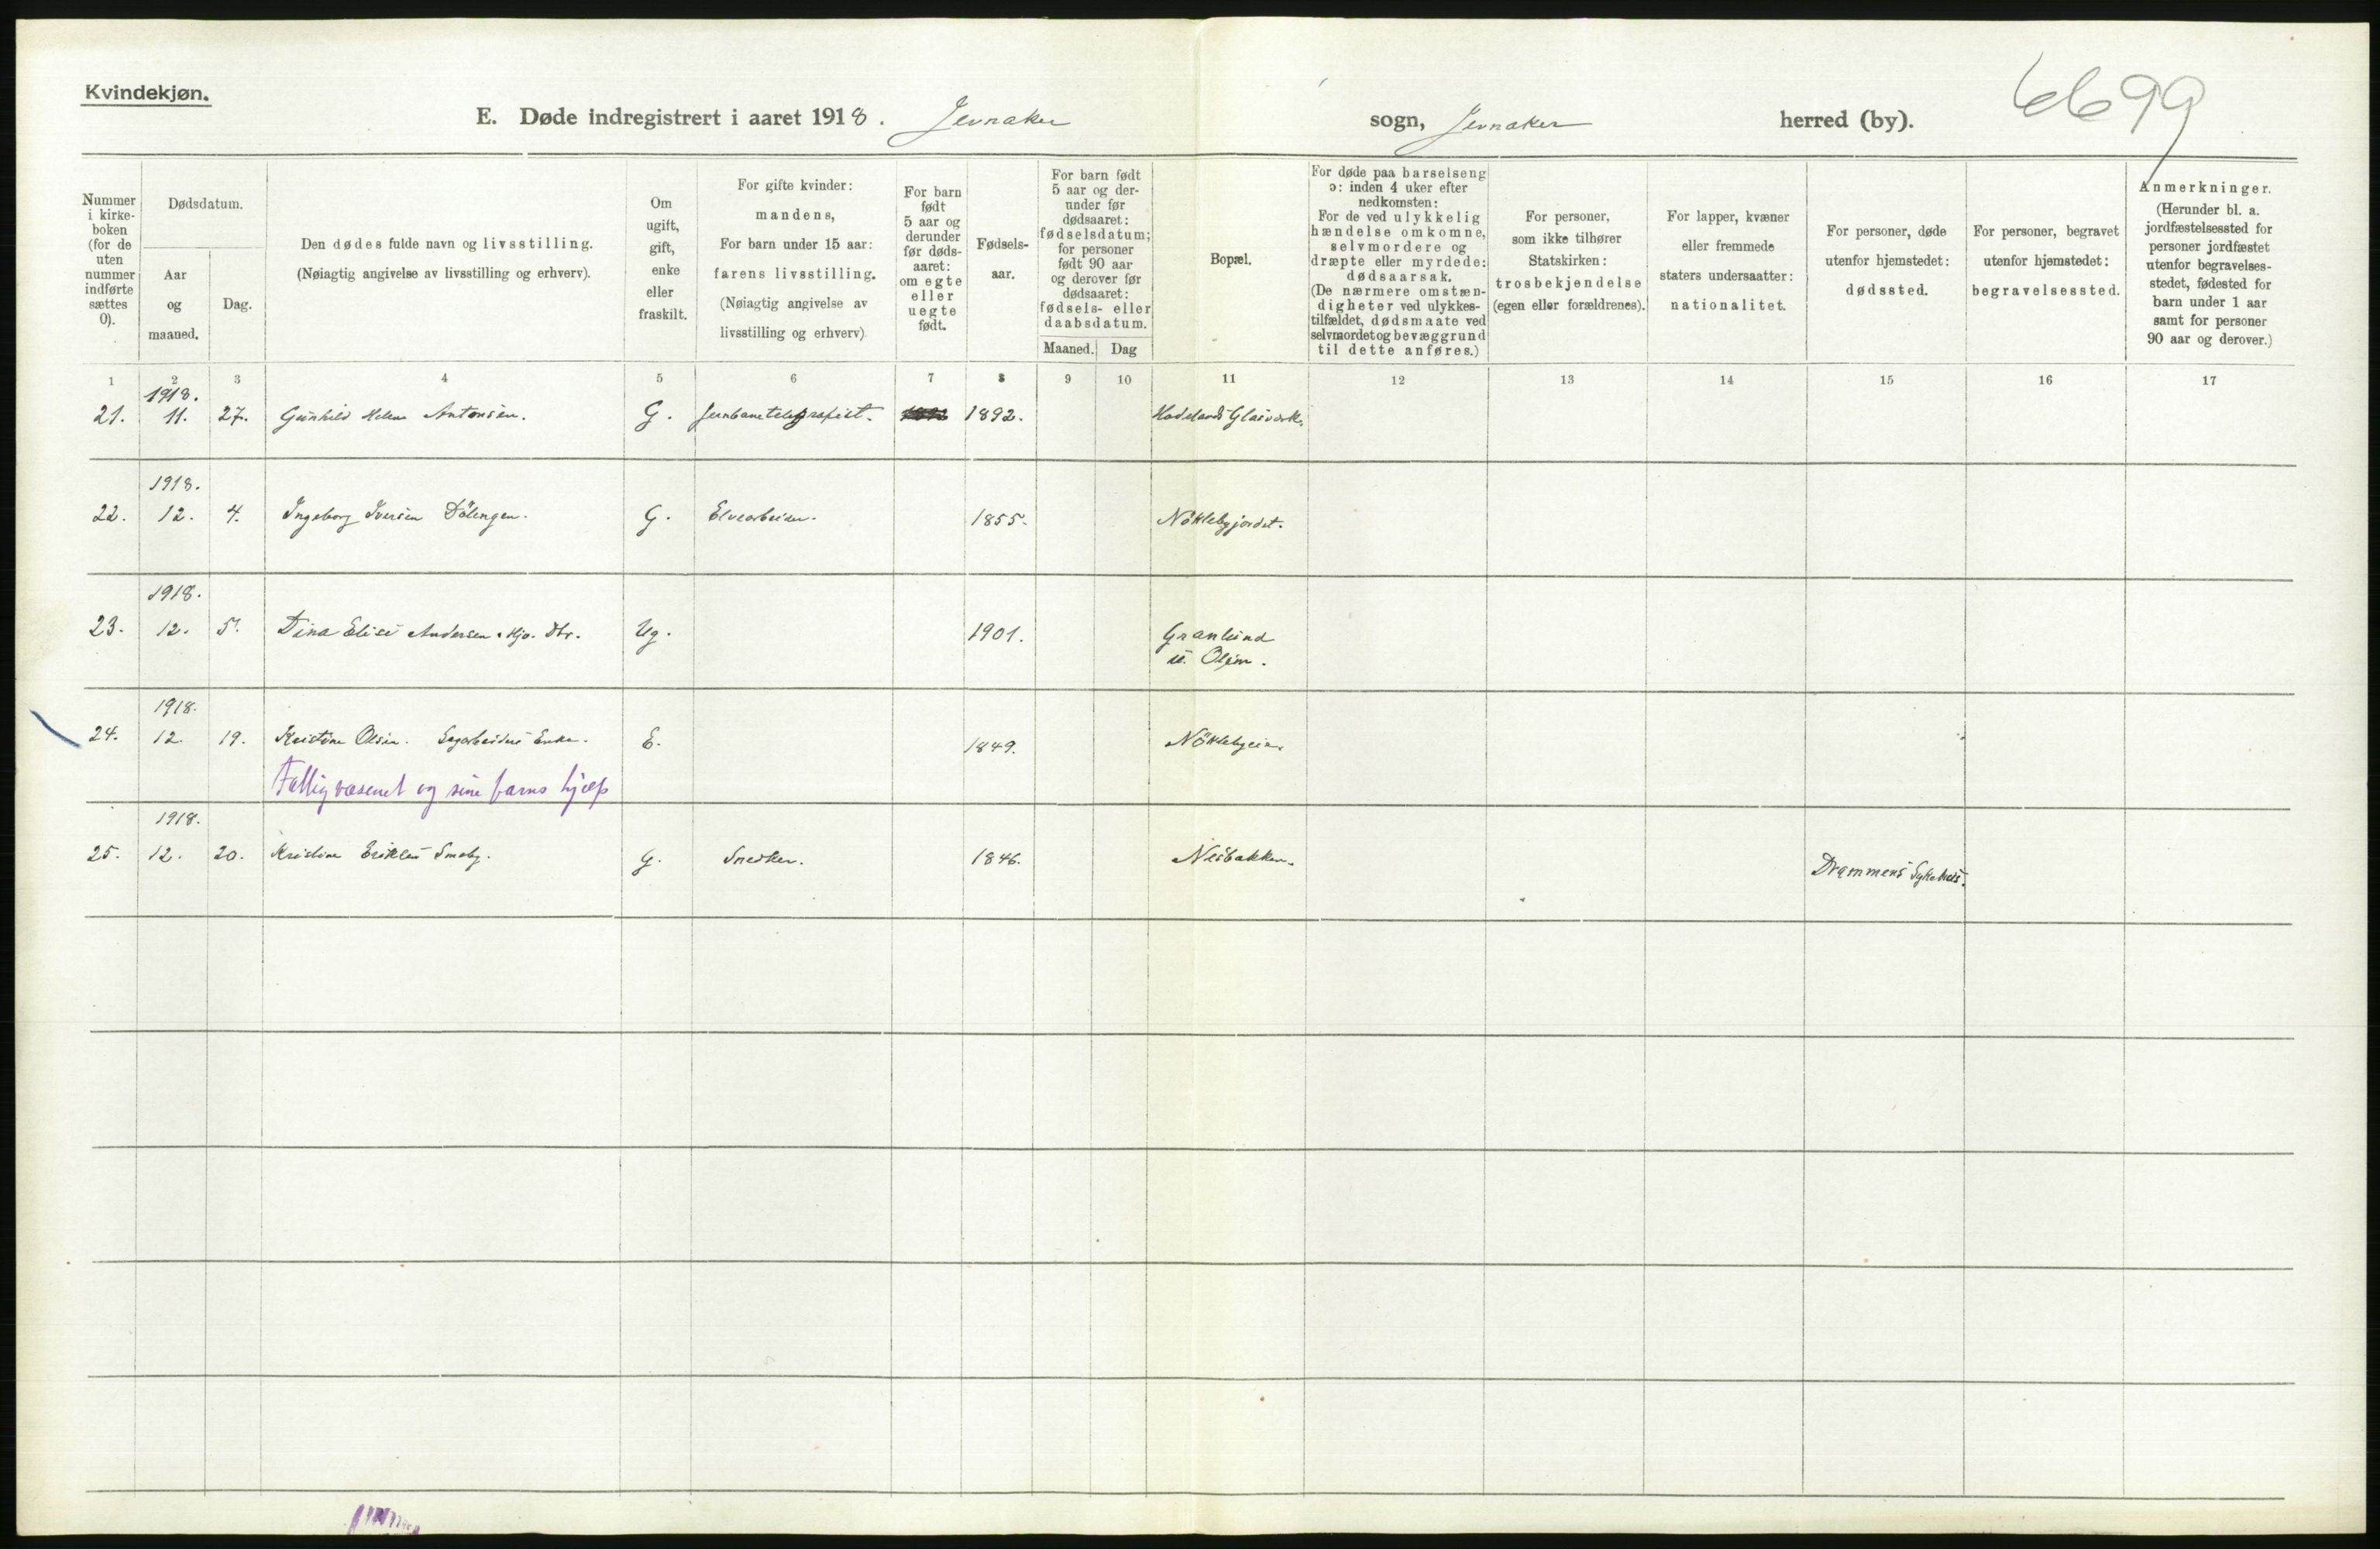 Kvindekjøn.
E. Døde indregistrert i aaret 1918. Jevnaker sogn, Jevnaker herred (by).
6699
Nummer i kirke-boken (for de uten nummer indførte sættes 0).
Dødsdatum.
Aar og maaned.
Dag.
Den dødes fulde navn og livsstilling.
(Nøiagtig angivelse av livsstilling og erhverv).
Om ugift, gift, enke eller fraskilt.
For gifte kvinder: mandens,
For barn under 15 aar: farens livsstilling.
(Nøiagtig angivelse av livsstilling og erhverv)
For barn født 5 aar og derunder før døds-aaret: om egte eller uegte født.
Fødsels-aar.
For barn født 5 aar og der-under før dødsaaret: fødselsdatum; for personer født 90 aar og derover før dødsaaret: fødsels- eller daabsdatum.
Maaned. Dag
Bopæl.
For døde paa barselseng ɔ: inden 4 uker efter nedkomsten:
For de ved ulykkelig hændelse omkomne, selvmordere og dræpte eller myrdede: dødsaarsak.
(De nærmere omstæn-digheter ved ulykkes-tilfældet, dødsmaate ved selvmordet og bevæggrund til dette anføres.)
For personer, som ikke tilhører Statskirken: trosbekjendelse (egen eller forældrenes).
For lapper, kvæner eller fremmede staters undersaatter: nationalitet.
For personer, døde utenfor hjemstedet: dødssted.
For personer, begravet utenfor hjemstedet: begravelsessted.
Anmerkninger.
(Herunder bl. a. jordfæstelsessted for personer jordfæstet utenfor begravelses-stedet, fødested for barn under 1 aar samt for personer 90 aar og derover.)
1 2 3 4 5 6 7 8 9 10 11 12 13 14 15 16 17
1918.
21. 11. 27. Gunhild Helene Antonsen. G. Jernbanetelegrafist. 1892. Hadelands Glasværk.
1918.
22. 12. 4. Ingeborg Iversen Dölengen. G. Elvearbeider. 1855. Nöklebyjordet.
1918.
23. 12. 5. Dina Elise Andersen. Hjv. Dtr. Ug. 1901. Granlund
u. Olum.
1918.
24. 12. 19. Kristine Olsen. Sagarbeiders Enke. E. 1849. Nöklebyeie.
Fattigvæsenet og sine barns hjælp
1918.
25. 12. 20. Kristine Smeby. G. Snedker. 1846. Nesbakken. Drammens Sykehus.